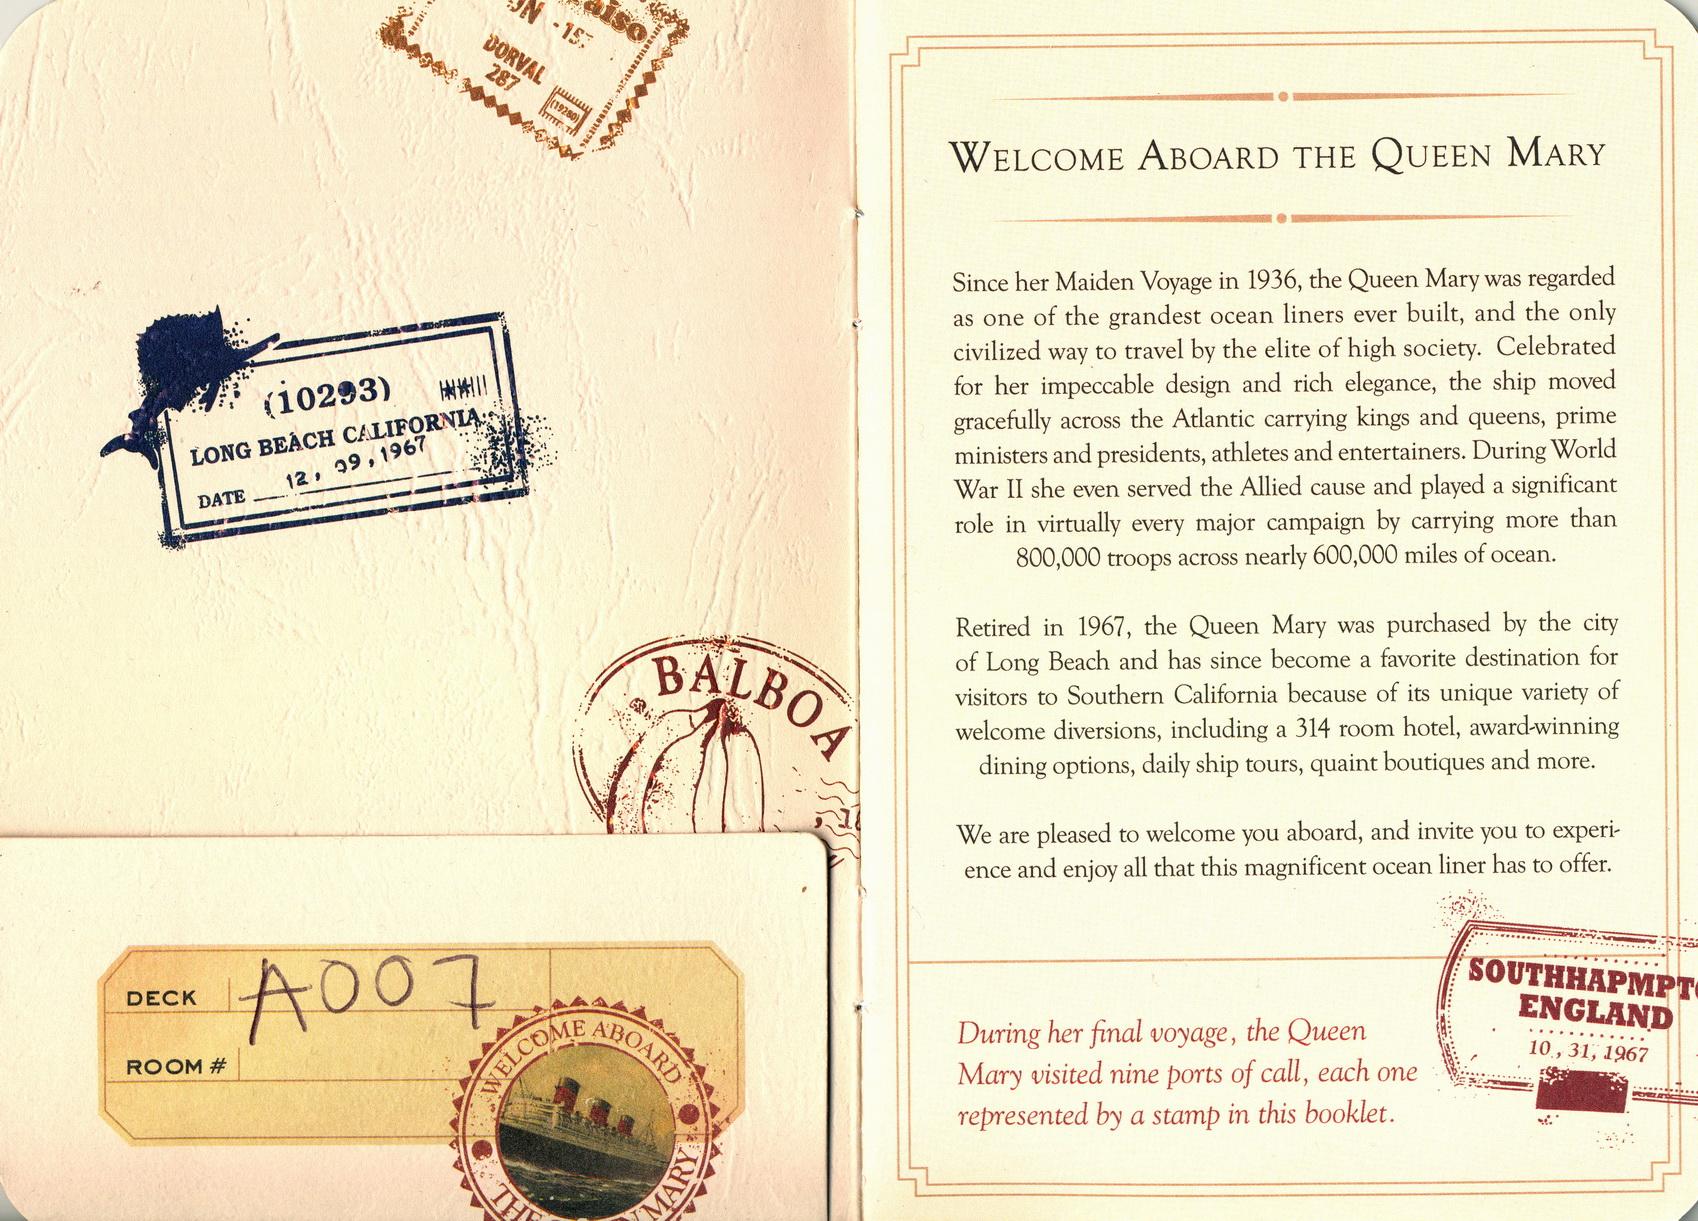 aiso
-15
DORVAL
287
(19260)
(10293)
LONG BEACH CALIFORNIA
12, 09, 1967
DATE
BALBOA
DECK A007
ROOM #
WELCOME ABOARD
THE QUEEN MARY
WELCOME ABOARD THE QUEEN MARY
Since her Maiden Voyage in 1936, the Queen Mary was regarded
as one of the grandest ocean liners ever built, and the only
civilized way to travel by the elite of high society. Celebrated
for her impeccable design and rich elegance, the ship moved
gracefully across the Atlantic carrying kings and queens, prime
ministers and presidents, athletes and entertainers. During World
War II she even served the Allied cause and played a significant
role in virtually every major campaign by carrying more than
800,000 troops across nearly 600,000 miles of ocean.
Retired in 1967, the Queen Mary was purchased by the city
of Long Beach and has since become a favorite destination for
visitors to Southern California because of its unique variety of
welcome diversions, including a 314 room hotel, award-winning
dining options, daily ship tours, quaint boutiques and more.
We are pleased to welcome you aboard, and invite you to experi-
ence and enjoy all that this magnificent ocean liner has to offer.
During her final voyage, the Queen
Mary visited nine ports of call, each one
represented by a stamp in this booklet.
SOUTHHAPMPTO
ENGLAND
10, 31, 1967